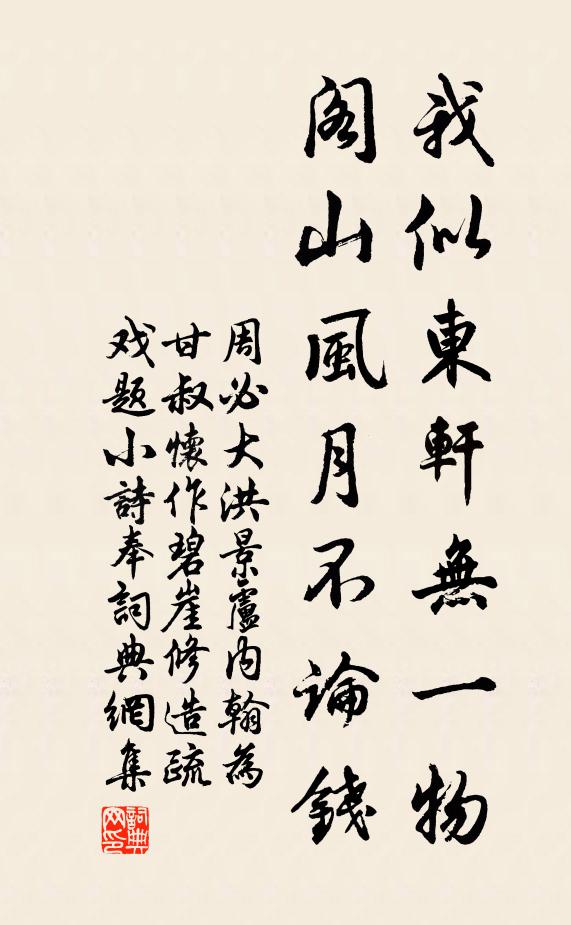 我似東軒無一物
閣山風月不論錢
周必大洪景廬内翰為
甘叔懷作碧崖修造疏
戏题小詩奉詞典網集
詞典网印